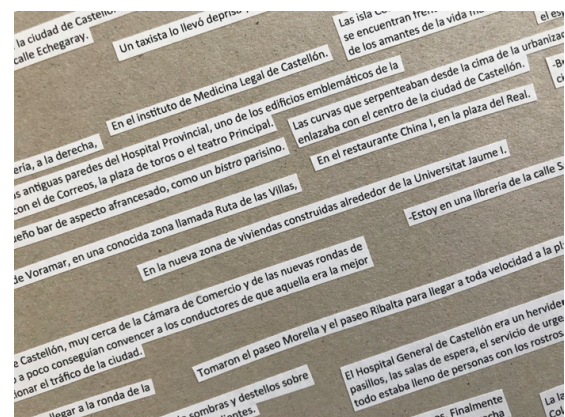 la ciudad de Castellón
calle Echegaray.
Un taxista lo llevó deprisa
Las isla
se encuentran
de los amantes de la vida
En el instituto de Medicina Legal de Castellón.
a la derecha,
antiguas paredes del Hospital Provincial, uno de los edificios emblemáticos de la
con el de Correos, la plaza de toros o el teatro Principal.
bar de aspecto afrancesado, como un bistro parisino.
Las curvas que serpenteaban desde la cima de la
enlazaba con el centro de la ciudad de Castellón.
En el restaurante China I, en la plaza del Real.
de Voramar, en una conocida zona llamada Ruta de las Villas,
En la nueva zona de viviendas construidas alrededor de la Universitat Jaume I.
-Estoy en una librería de la calle
Castellón, muy cerca de la Cámara de Comercio y de las nuevas rondas de
a poco conseguían convencer a los conductores de que aquella era la mejor
el tráfico de la ciudad.
Tomaron el paseo Morella y el paseo Ribalta para llegar a toda velocidad a la
El Hospital General de Castellón era un
pasillos, las salas de espera, el servicio de
todo estaba lleno de personas con los rostros
llegar a la ronda de la
sombras y destellos sobre
Finalmente